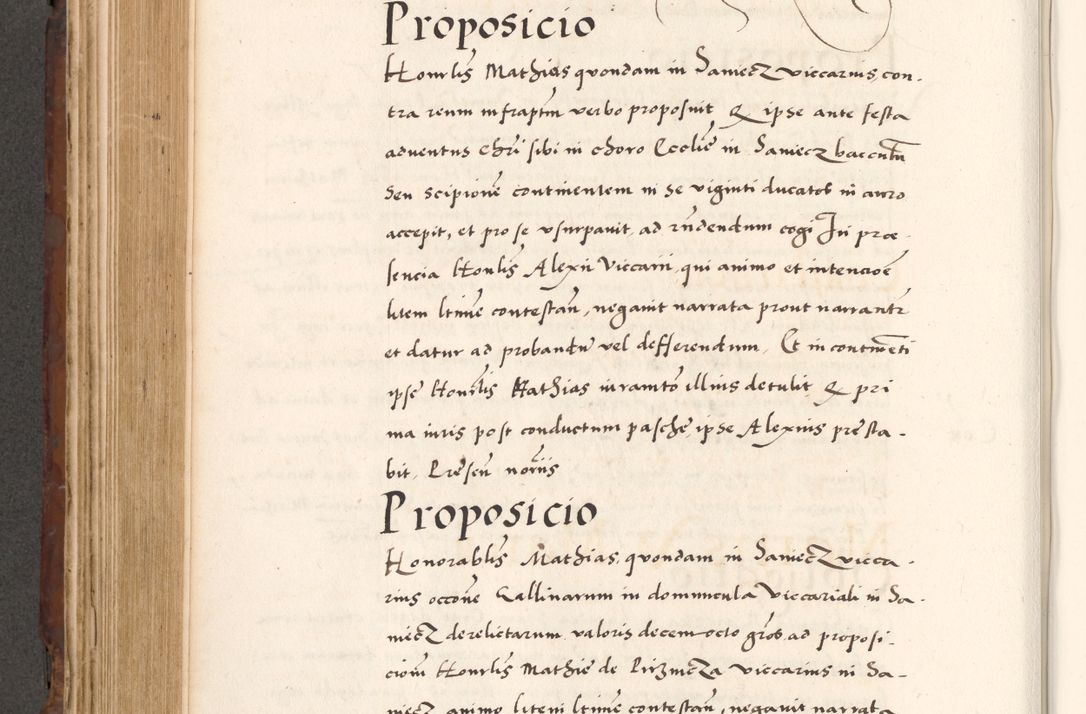 Proposicio
Honrlis Mathias quondam in Saniecz viccarius con-
tra reum infraptm verbo proposuit Q ipse ante festa
adventus Chri sibi in choro Ecclie in Saniecz baccultu
seu scipione continentem in se viginti ducatos in auro
accepit, et pro se usurpauit, ad rndendum cogi In præ-
sencia Honlis Alexii Viccarii, qui animo et intencioe
litem ltime contestan, negauit narrata prout narrantr
et datur ad probandu vel defferendum, Et in continenti
ipse Honrlis Mathias iuramto illius detulit Q pri
ma iuris post conductum pasche ipse Alexius presta-
bit, Presen noriis
Proposicio
Honorablis Mathias, quondam in Saniecz vicca-
rius occone Gallinarum in domuncula Viccariali in Sa-
niecz derelictarum valoris decem octo gros, ad proposi-
ciom Honrlis Mathie de viccarius in Sa-
niecz animo litem ltime contestan, negauit narrata